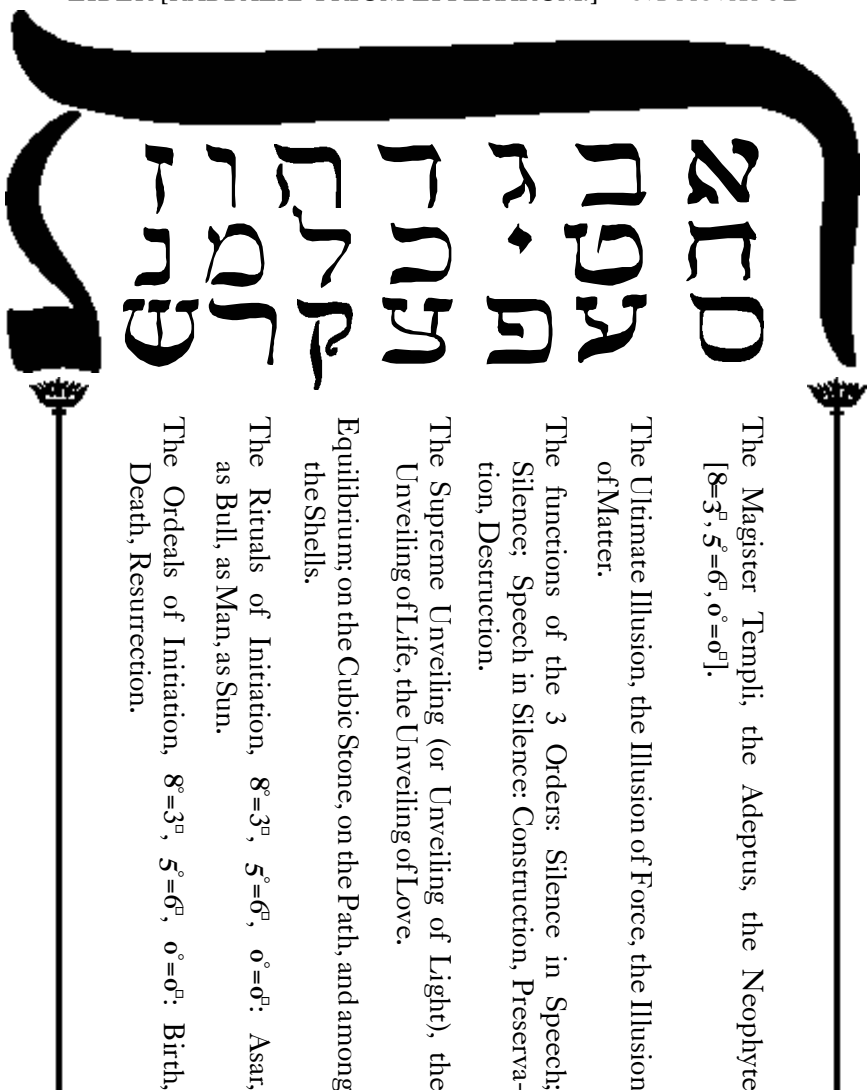 ת
א ב ג ד ה ו ז
ח ט י כ ל מ נ
ס ע פ צ ק ר ש
The Magister Templi, the Adeptus, the Neophyte
[8°=3□, 5°=6□, 0°=0□].
The Ultimate Illusion, the Illusion of Force, the Illusion
of Matter.
The functions of the 3 Orders: Silence in Speech;
Silence; Speech in Silence: Construction, Preserva-
tion, Destruction.
The Supreme Unveiling (or Unveiling of Light), the
Unveiling of Life, the Unveiling of Love.
Equilibrium; on the Cubic Stone, on the Path, and among
the Shells.
The Rituals of Initiation, 8°=3□, 5°=6□, 0°=0□: Asar,
as Bull, as Man, as Sun.
The Ordeals of Initiation, 8°=3□, 5°=6□, 0°=0□: Birth,
Death, Resurrection.